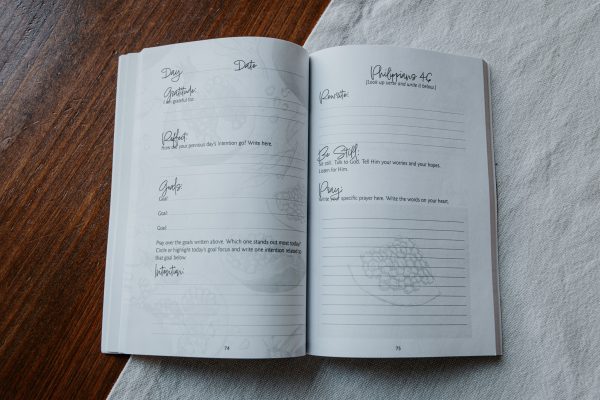 Day Date
Gratitude:
I am grateful for:
Reflect:
How did your previous day's intention go? Write here.
Goals:
Goal:
Goal:
Goal:
Pray over the goals written above. Which one stands out most today?
Circle or highlight today's goal focus and write one intention related to
that goal below.
Intention:
74
Philippians 4:6
[Look up verse and write it below.]
Rewrite:
Be Still:
Be still. Talk to God. Tell Him your worries and your hopes.
Listen for Him.
Pray:
Write your specific prayer here. Write the words on your heart.
75